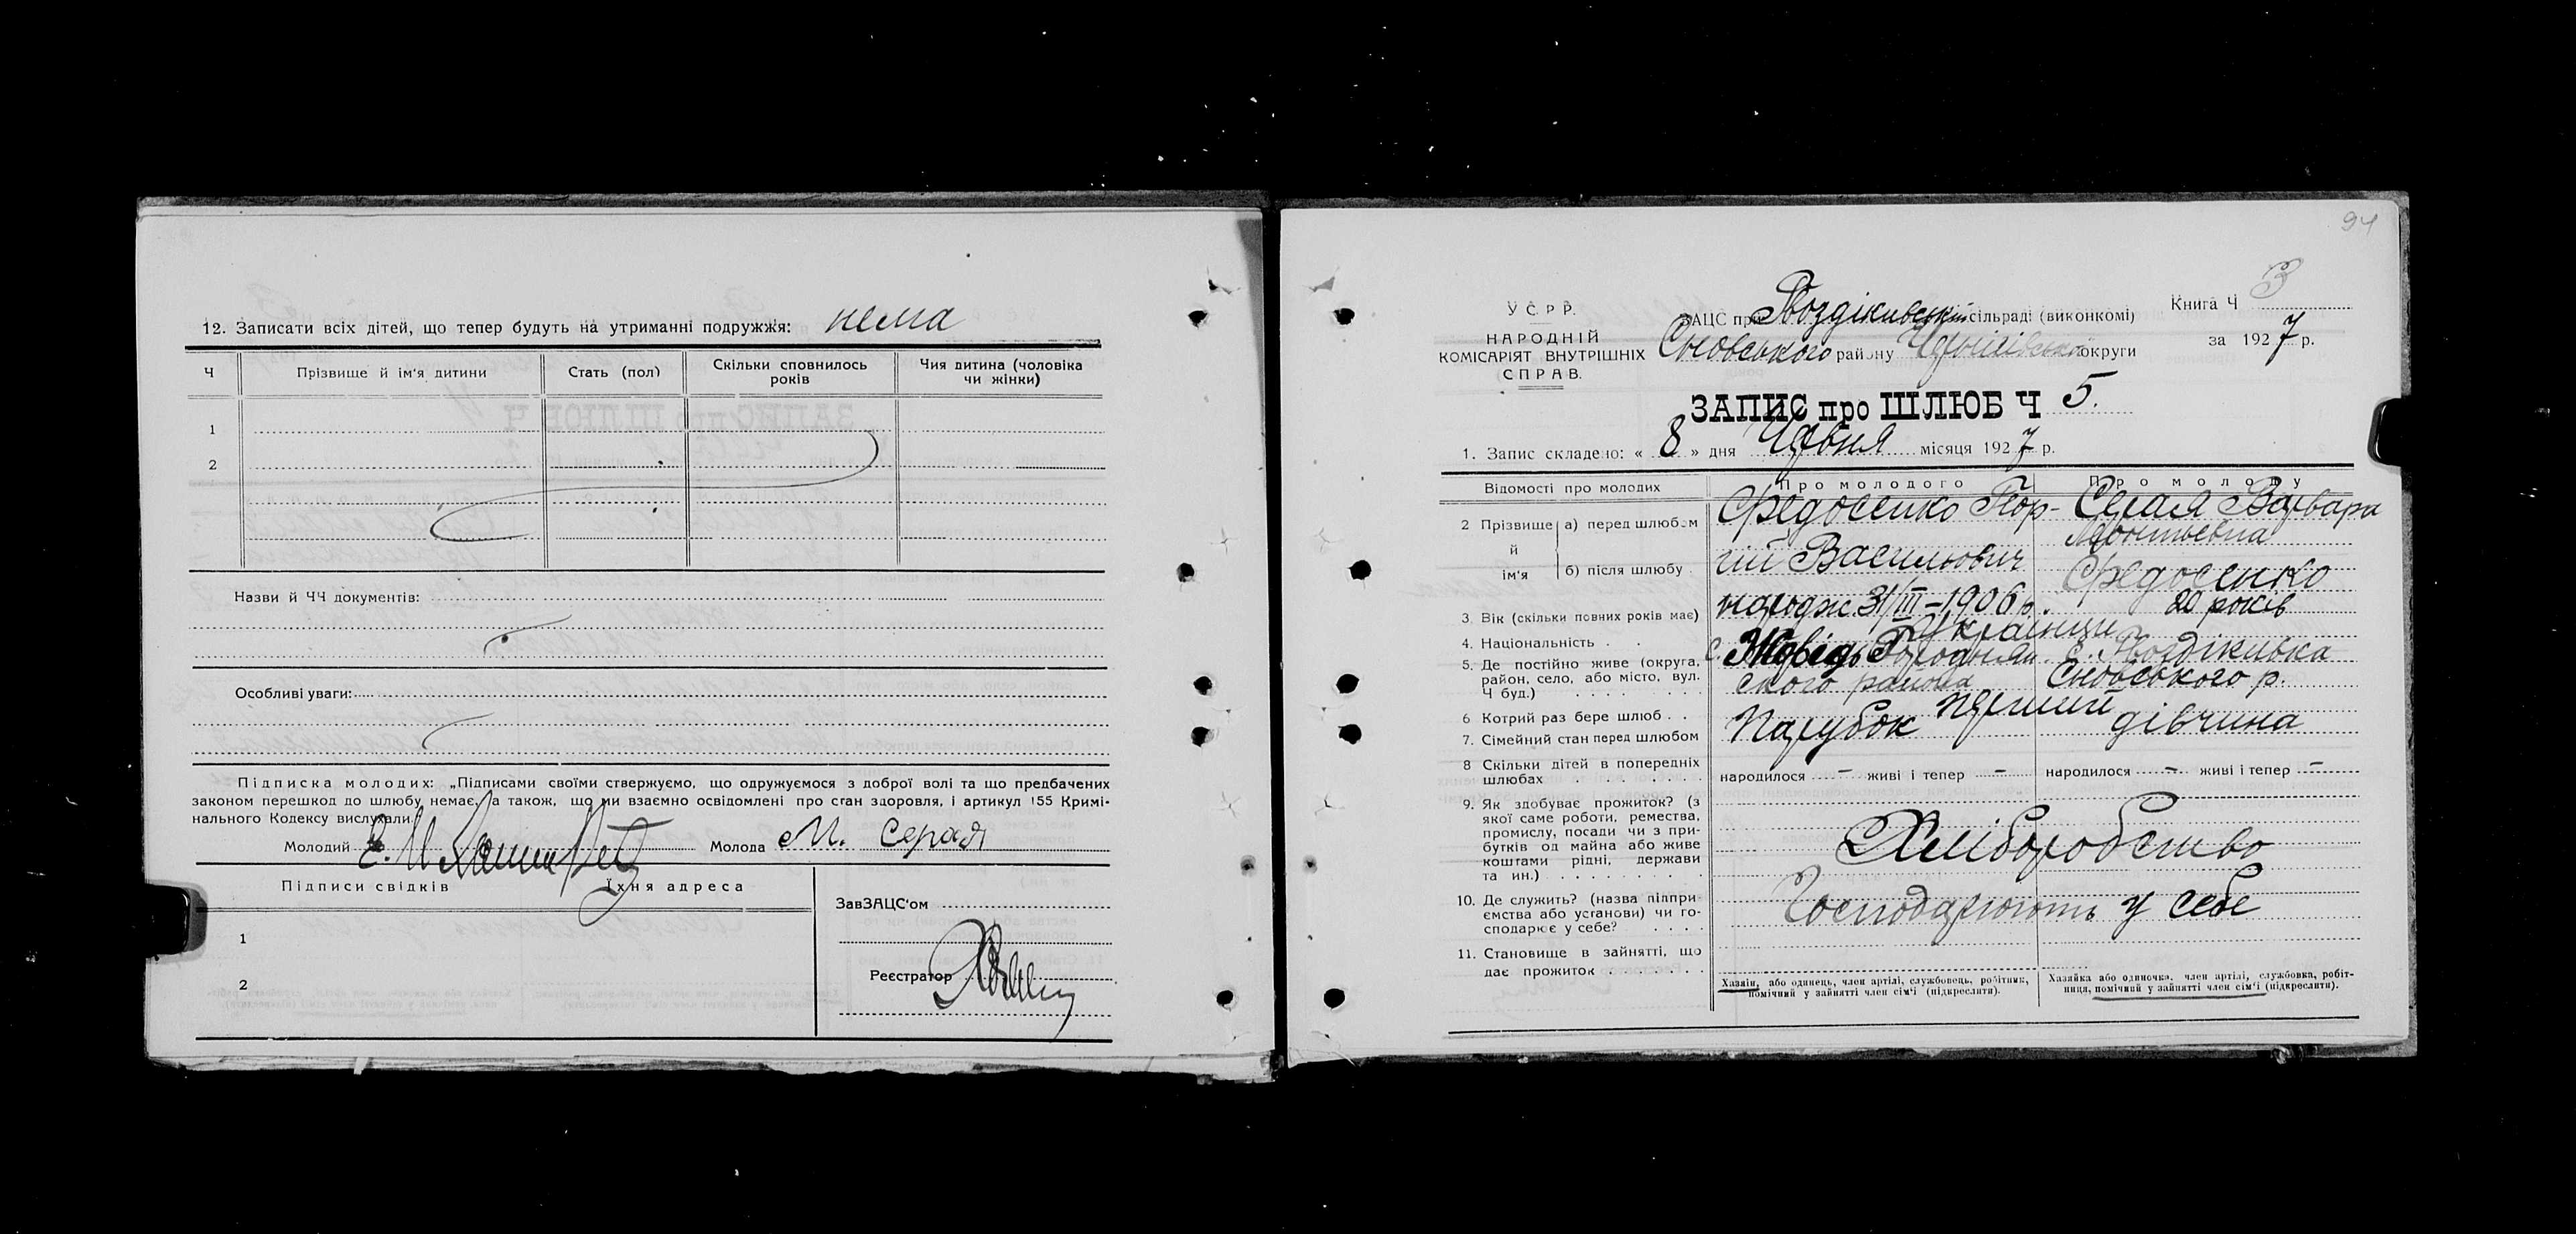 12. Записати всіх дітей, що тепер будуть на утриманні подружжя: нема
Ч Прізвище й ім'я дитини Стать (пол) Скільки сповнилось років Чия дитина (чоловіка чи жінки)
1
2
Назви й ЧЧ документів:
Особливі уваги:
Підписка молодих: „Підписами своїми стверджуємо, що одружуємося з доброї волі та що предбачених
законом перешкод до шлюбу немає, а також, що ми взаємно освідомлені про стан здоровля, і артикул 155 Кримі-
нального Кодексу вислухали.
Молодий Молода М. Серая
Підписи свідків Їхня адреса
ЗавЗАЦС'ом
1
Реєстратор
2
94
У С Р Р.
НАРОДНІЙ
КОМІСАРІЯТ ВНУТРІШНІХ
СПРАВ.
ЗАЦС при Гвоздіківській сільраді (виконкомі)
Сновського району Чернігівської округи
Книга Ч 3
за 1927 р.
ЗАПИС про ШЛЮБ Ч 5.
1. Запис складено: « 8 » дня Червня місяця 1927 р.
Відомості про молодих Про молодого Про молоду
2 Прізвище й ім'я а) перед шлюбом Федосенко Геор- Серая Варвара
Леонтьевна
б) після шлюбу гій Васильович Федосенко
3. Вік (скільки повних років має) народж. 31/III-1906 р. 20 років
4. Національність . . Українці
5. Де постійно живе (округа, район, село, або місто, вул. Ч буд.) с. Жовідь Городнян- с. Гвоздіківка
ского района Сновського р.
6 Котрий раз бере шлюб . . перший
7. Сімейний стан перед шлюбом Парубок дівчина
8 Скільки дітей в попередніх шлюбах народилося – живі і тепер – народилося – живі і тепер –
9. Як здобуває прожиток? (з
якої саме роботи, ремества,
промислу, посади чи з при-
бутків од майна або живе
коштами рідні, держави
та ин.) Хліборобство
10. Де служить? (назва підпри-
ємства або установи) чи го-
сподарює у себе? Господарюють у себе
11. Становище в зайнятті, що
дає прожиток
Хазяїн, або одинець, член артілі, службовець, робітник,
помічний у зайнятті член сім'ї (підкреслити).
Хазяйка або одиночка, член артілі, службовка, робіт-
ниця, помічний у зайнятті член сім'ї (підкреслити).